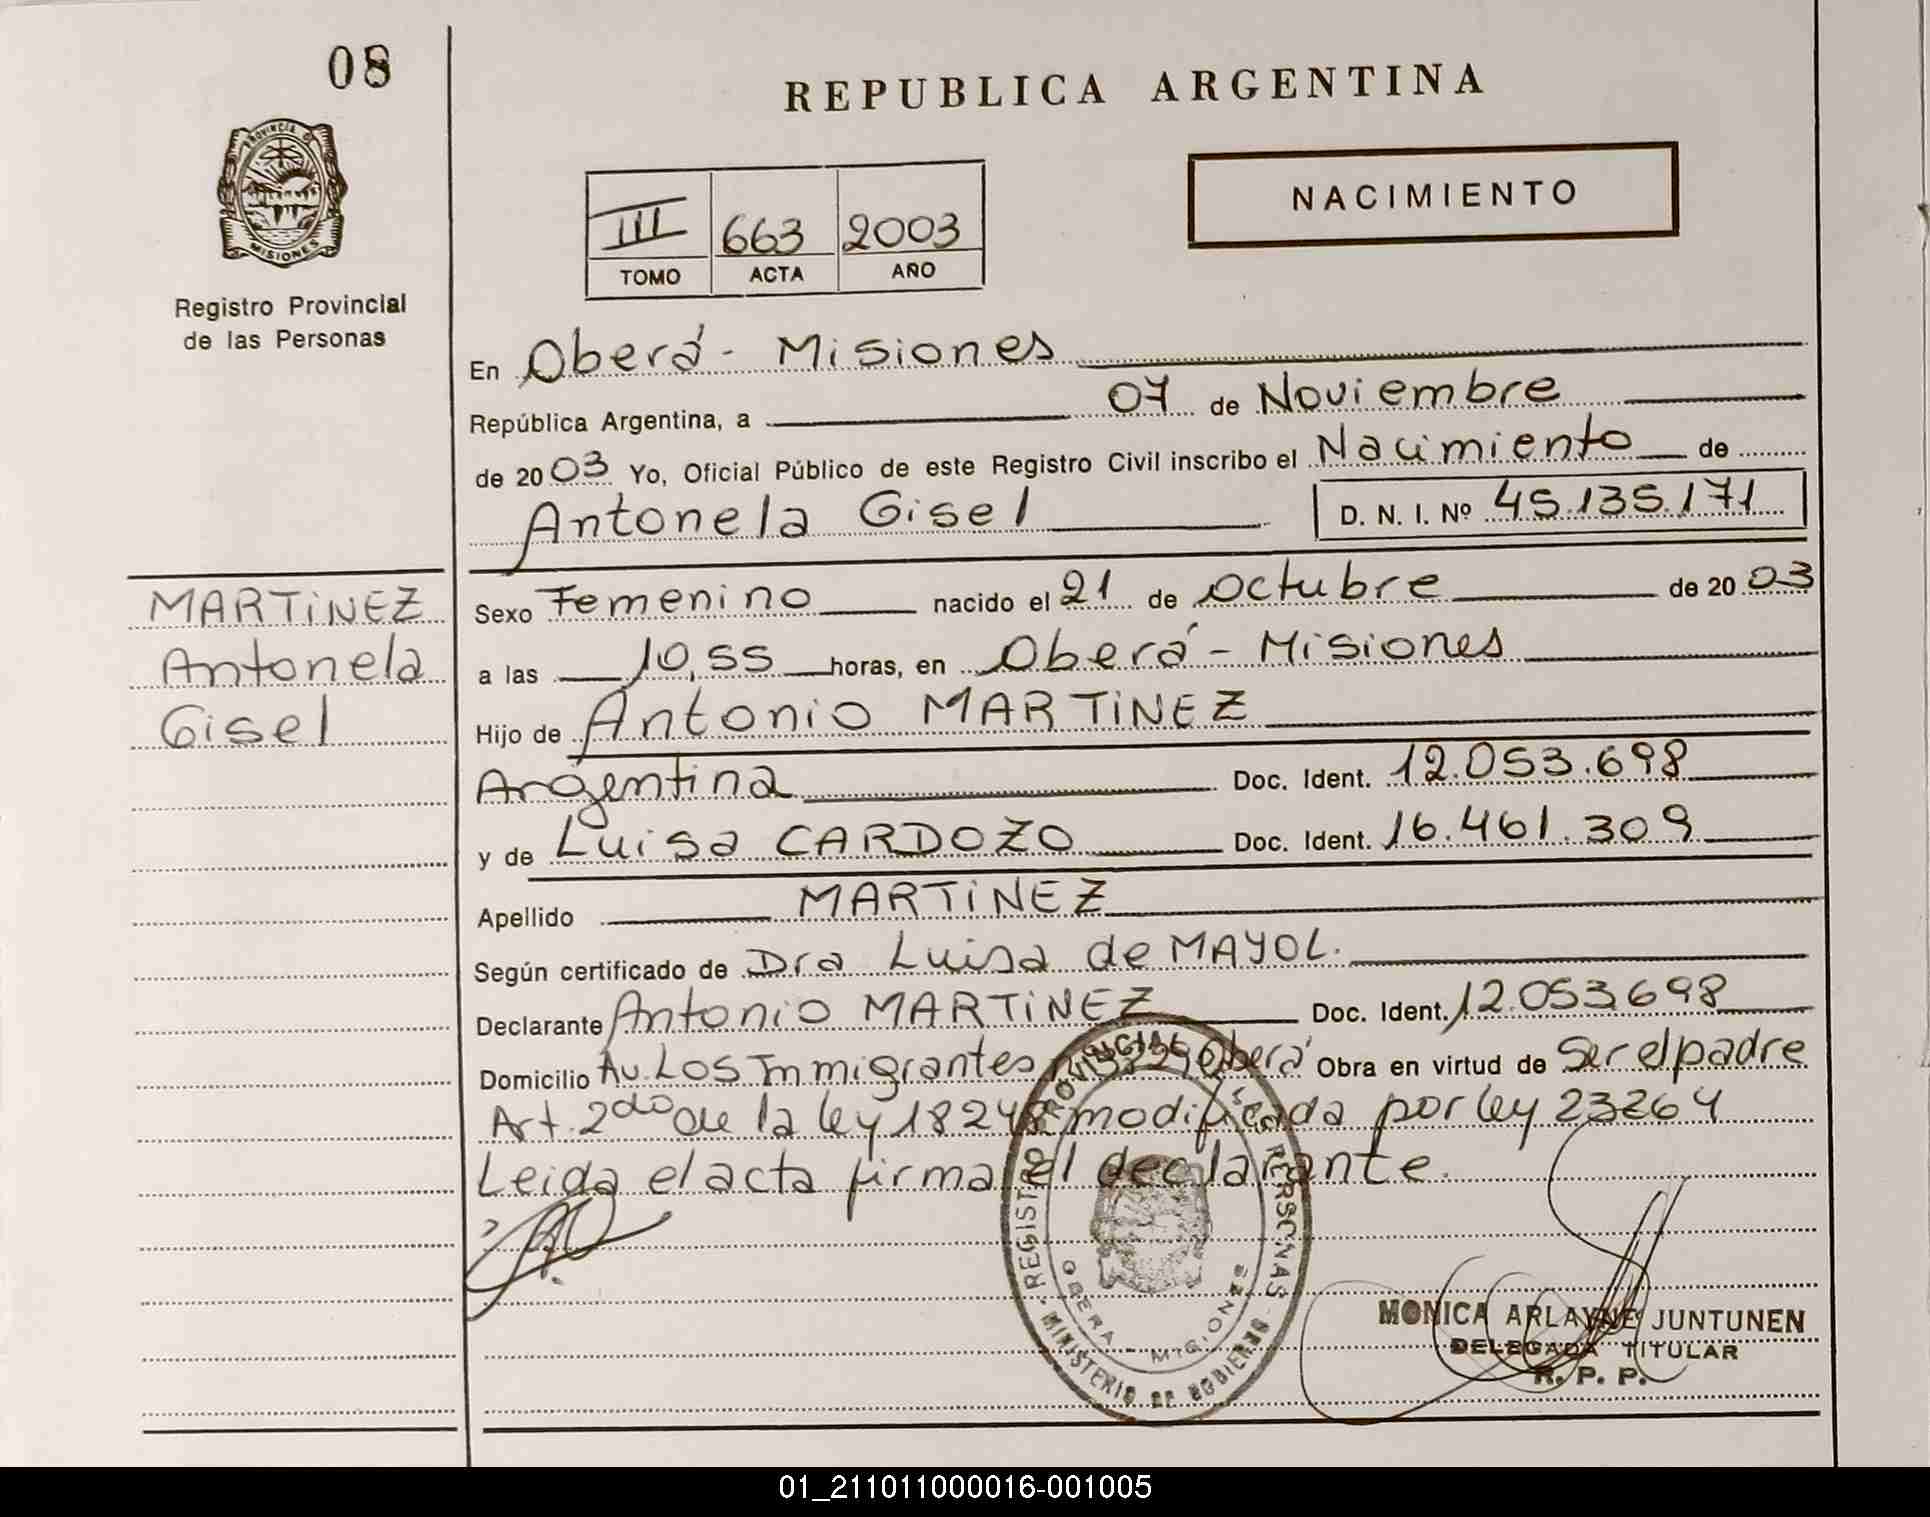 08
REPUBLICA ARGENTINA
PROVINCIA DE
MISIONES
NACIMIENTO
III 663 2003
TOMO ACTA AÑO
Registro Provincial
de las Personas
En Oberá - Misiones
República Argentina, a 07 de Noviembre
de 2003 Yo, Oficial Público de este Registro Civil inscribo el Nacimiento de
Antonela Gisel D. N. I. Nº 45.135.171
MARTINEZ
Antonela
Gisel
Sexo Femenino nacido el 21 de Octubre de 2003
a las 10,55 horas, en Oberá - Misiones
Hijo de Antonio MARTINEZ
Argentina Doc. Ident. 12.053.698
y de Luisa CARDOZO Doc. Ident. 16.461.309
Apellido MARTINEZ
Según certificado de Dra Luisa de MAYOL.
Declarante Antonio MARTINEZ Doc. Ident. 12.053.698
Domicilio Av. Los Inmigrantes Oberá Obra en virtud de Ser el padre
Art. 2do de la ley 18248 modificada por ley 23264
Leida el acta firma el declarante.
REGISTRO PROVINCIAL DE LAS PERSONAS
OBERA - MISIONES
MINISTERIO DE GOBIERNO
MONICA ARLAYNE JUNTUNEN
DELEGADA TITULAR
R. P. P.
01_211011000016-001005